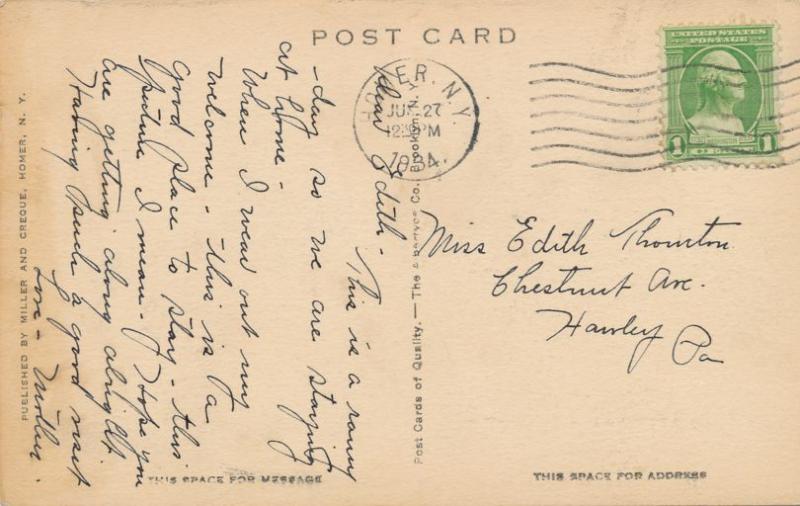 POST CARD
UNITED STATES
POSTAGE
1
1
ER, N.Y.
JU 27
12 PM
1934
Dear Edith -
This is a rainy
-day so we are staying
at home -
When I wear out my
welcome - this is a
good place to stay - this
picture I mean - I hope you
are getting along alright
Having such a good visit
Love - Mother.
Miss Edith Thornton
Chestnut Ave.
Hawley Pa
PUBLISHED BY MILLER AND CREQUE, HOMER, N. Y.
Post Cards of Quality. — The Co., Brooklyn, N. Y.
THIS SPACE FOR MESSAGE
THIS SPACE FOR ADDRESS